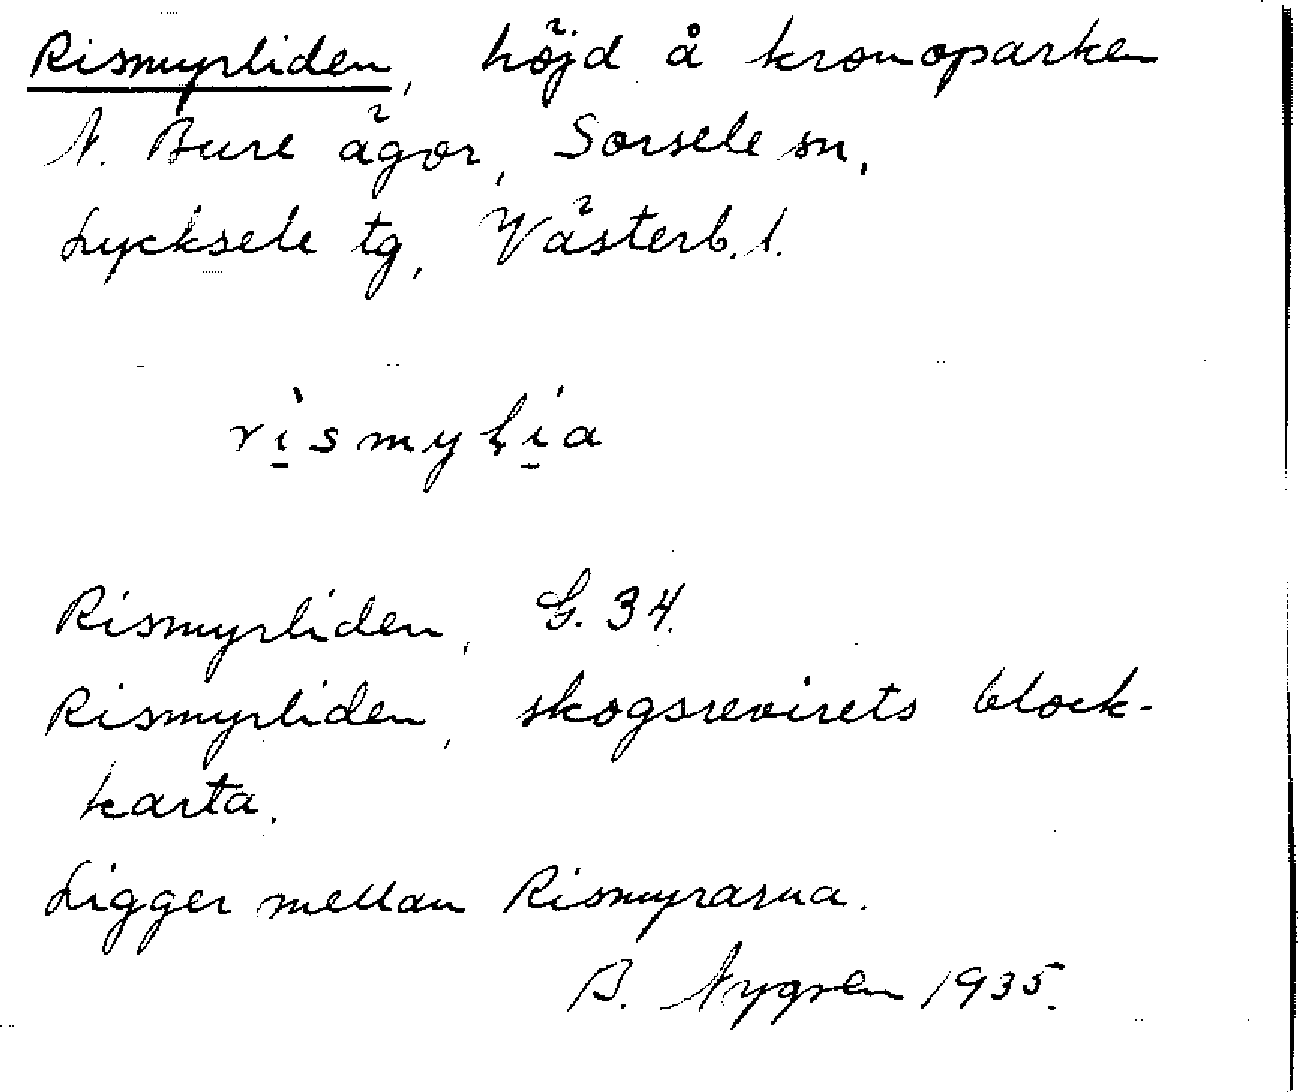 Rismyrliden, höjd å kronoparken
N. Bure ägor, Sorsele sn,
Lycksele tg, Västerb. l.
rìsmylía
Rismyrliden, G. 34.
Rismyrliden, skogsrevirets block-
karta.
Ligger mellan Rismyrarna.
B. Nygren 1935.